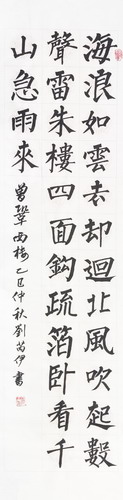 海浪如雲去却迴北風吹起數
聲雷朱樓四面鈎疏箔卧看千
山急雨來
曾鞏西樓乙巳仲秋劉芮伊書